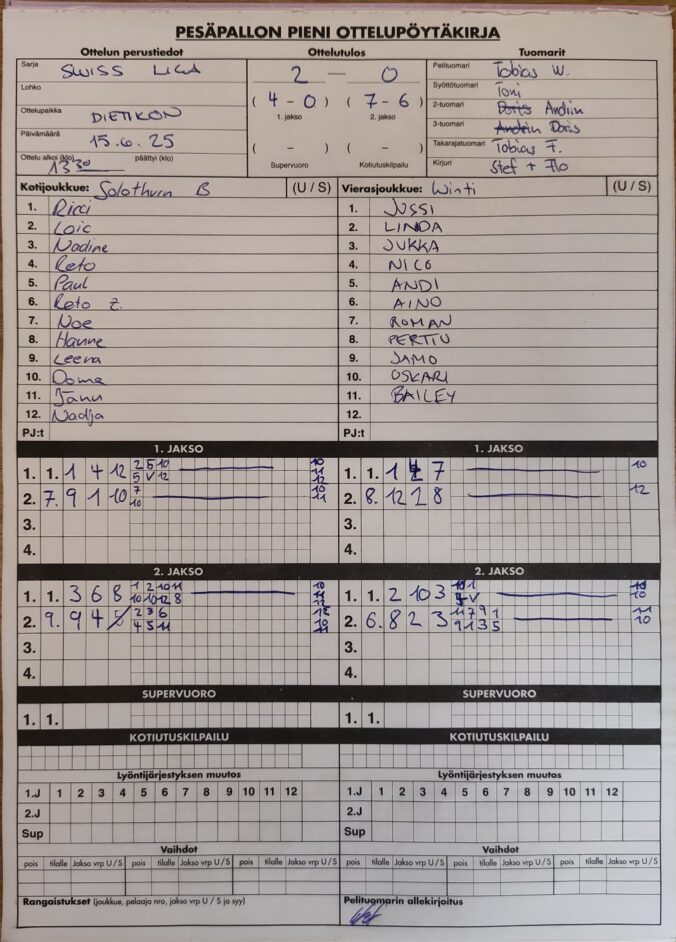 PESÄPALLON PIENI OTTELUPÖYTÄKIRJA
Ottelun perustiedot Ottelutulos Tuomarit
Sarja SWISS LIGA
Lohko
Ottelupaikka DIETIKON
Päivämäärä 15.6.25
Ottelu alkoi (klo) 13 30 päättyi (klo)
2 — 0
( 4 - 0 ) ( 7 - 6 )
1. jakso 2. jakso
( - ) ( - )
Supervuoro Kotiutuskilpailu
Pelituomari Tobias W.
Syöttötuomari Toni
2-tuomari Doris Andiin
3-tuomari Andiin Doris
Takarajatuomari Tobias F.
Kirjuri Stef + Flo
Kotijoukkue: Solothurn B (U / S) Vierasjoukkue: Winti (U / S)
1. Ricci 1. JUSSI
2. Loic 2. LINDA
3. Nadine 3. JUKKA
4. Reto 4. NICO
5. Paul 5. ANDI
6. Reto Z. 6. AINO
7. Noe 7. ROMAN
8. Hanne 8. PERTTU
9. Leena 9. JAMO
10. Doma 10. OSKARI
11. Janu 11. BAILEY
12. Nadja 12.
PJ:t PJ:t
1. JAKSO 1. JAKSO
1. 1. 1 4 12 2 5 10 5 V 12 10 11 12 1. 1. 1 7 10
2. 7. 9 1 10 7 10 10 11 2. 8. 12 1 8 12
3. 3.
4. 4.
2. JAKSO 2. JAKSO
1. 1. 3 6 8 1 2 10 11 10 10 12 8 1. 1. 2 10 3 10
2. 9. 9 4 5 2 3 6 4 5 11 12 10 11 2. 6. 8 2 3 11 7 9 1 9 1 3 5 11 10
3. 3.
4. 4.
SUPERVUORO SUPERVUORO
1. 1. 1. 1.
KOTIUTUSKILPAILU KOTIUTUSKILPAILU
Lyöntijärjestyksen muutos Lyöntijärjestyksen muutos
1.J 1 2 3 4 5 6 7 8 9 10 11 12 1.J 1 2 3 4 5 6 7 8 9 10 11 12
2.J 2.J
Sup Sup
Vaihdot Vaihdot
pois tilalle Jakso vrp U / S pois tilalle Jakso vrp U / S pois tilalle Jakso vrp U / S pois tilalle Jakso vrp U / S pois tilalle Jakso vrp U / S pois tilalle Jakso vrp U / S
Rangaistukset (joukkue, pelaaja nro, jakso vrp U / S ja syy) Pelituomarin allekirjoitus